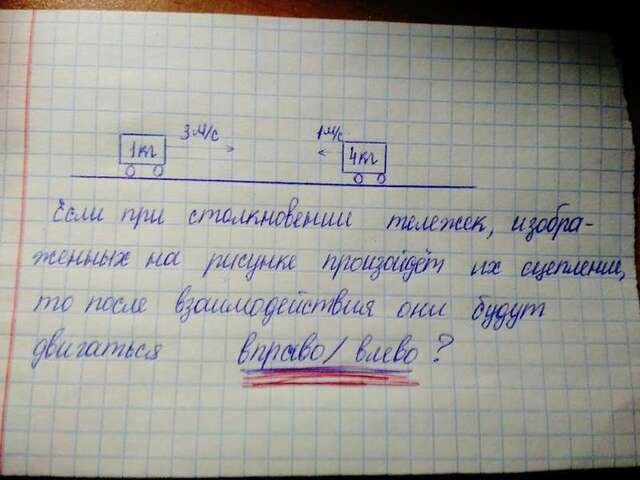 3 м/с 1 м/с
1 кг 4 кг
Если при столкновении тележек, изобра-
женных на рисунке произойдёт их сцепление,
то после взаимодействия они будут
двигаться вправо/ влево?